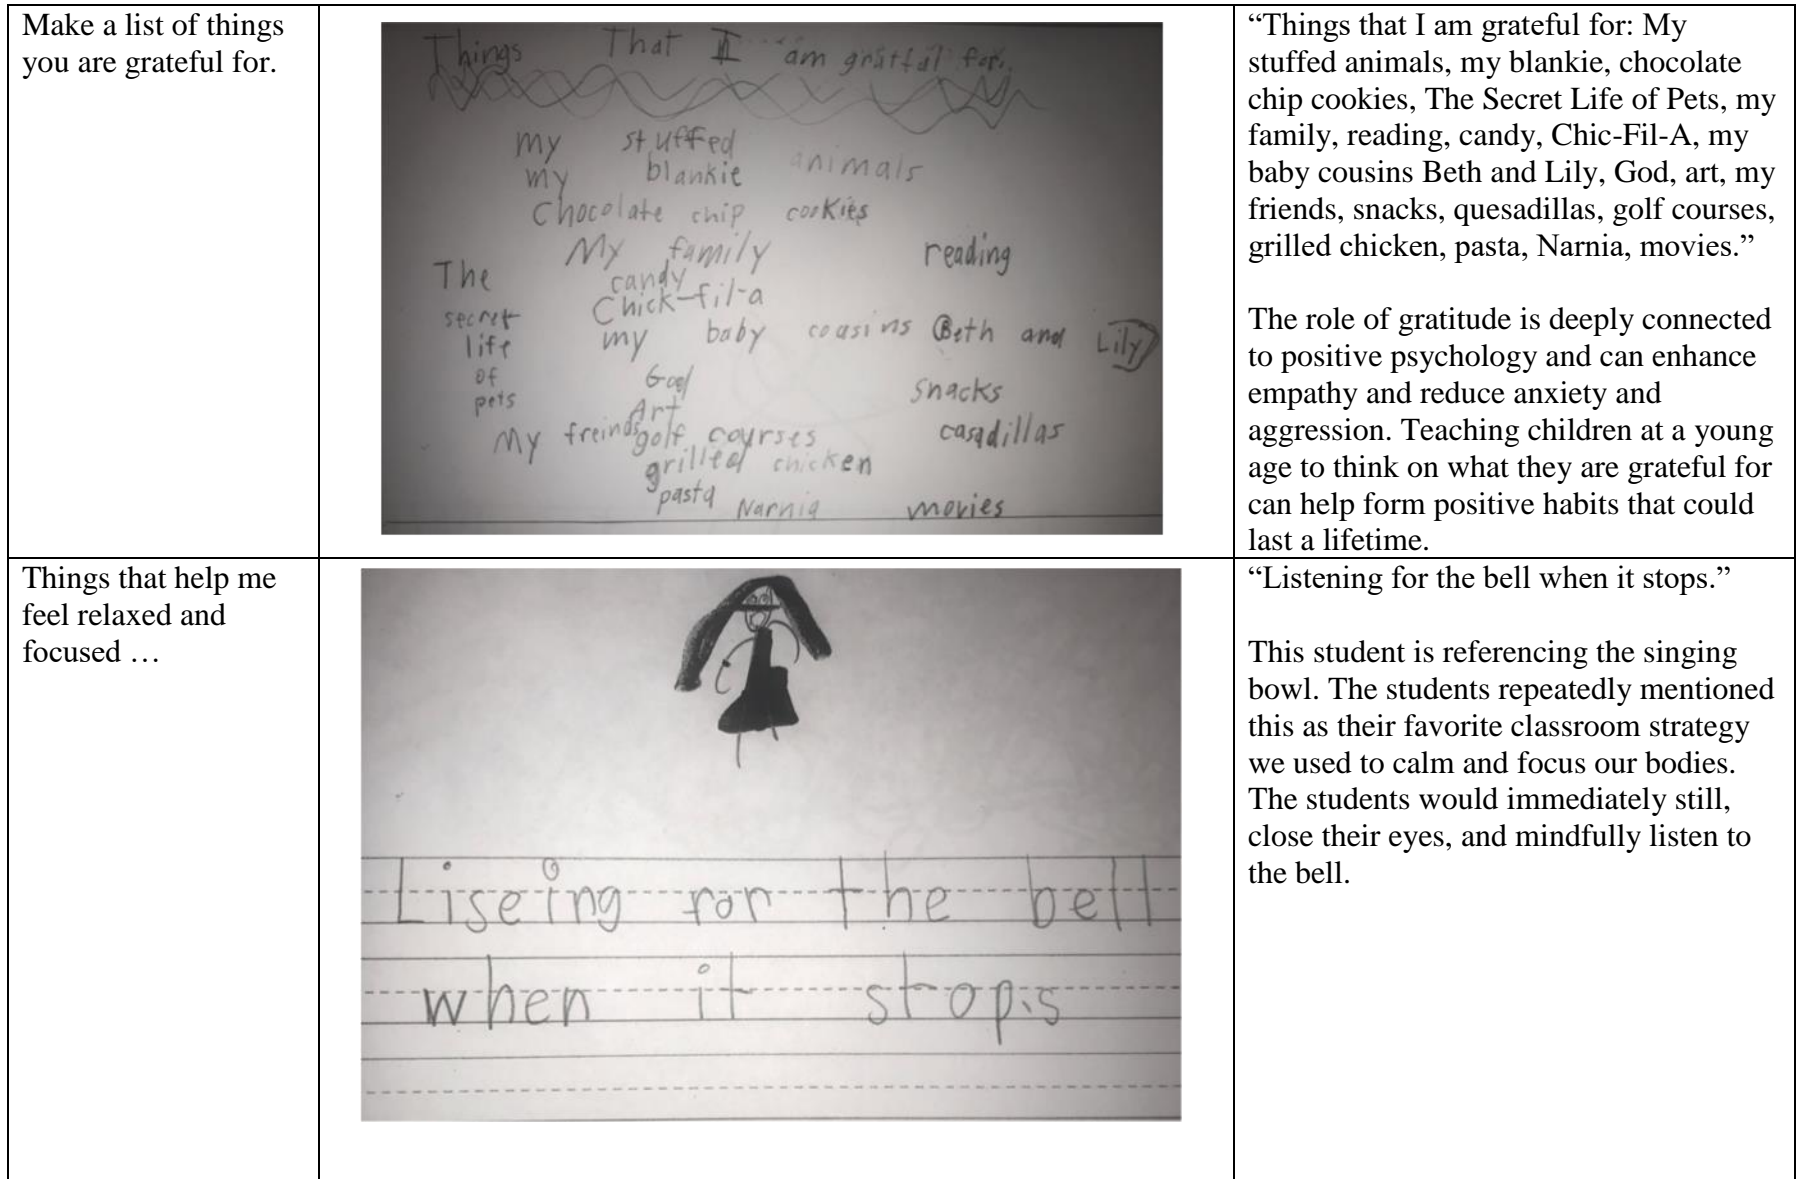 Make a list of things
you are grateful for.
Things That I am gratful for.
my stuffed animals
my blankie
Chocolate chip cookies
My family reading
The secret life of pets
candy
Chick-fil-a
my baby cousins Beth and Lily
God snacks
Art
My freinds casadillas
golf courses
grilled chicken
pasta Narnia movies
“Things that I am grateful for: My
stuffed animals, my blankie, chocolate
chip cookies, The Secret Life of Pets, my
family, reading, candy, Chic-Fil-A, my
baby cousins Beth and Lily, God, art, my
friends, snacks, quesadillas, golf courses,
grilled chicken, pasta, Narnia, movies.”
The role of gratitude is deeply connected
to positive psychology and can enhance
empathy and reduce anxiety and
aggression. Teaching children at a young
age to think on what they are grateful for
can help form positive habits that could
last a lifetime.
Things that help me
feel relaxed and
focused …
Liseing for the bell
when it stop.s
“Listening for the bell when it stops.”
This student is referencing the singing
bowl. The students repeatedly mentioned
this as their favorite classroom strategy
we used to calm and focus our bodies.
The students would immediately still,
close their eyes, and mindfully listen to
the bell.